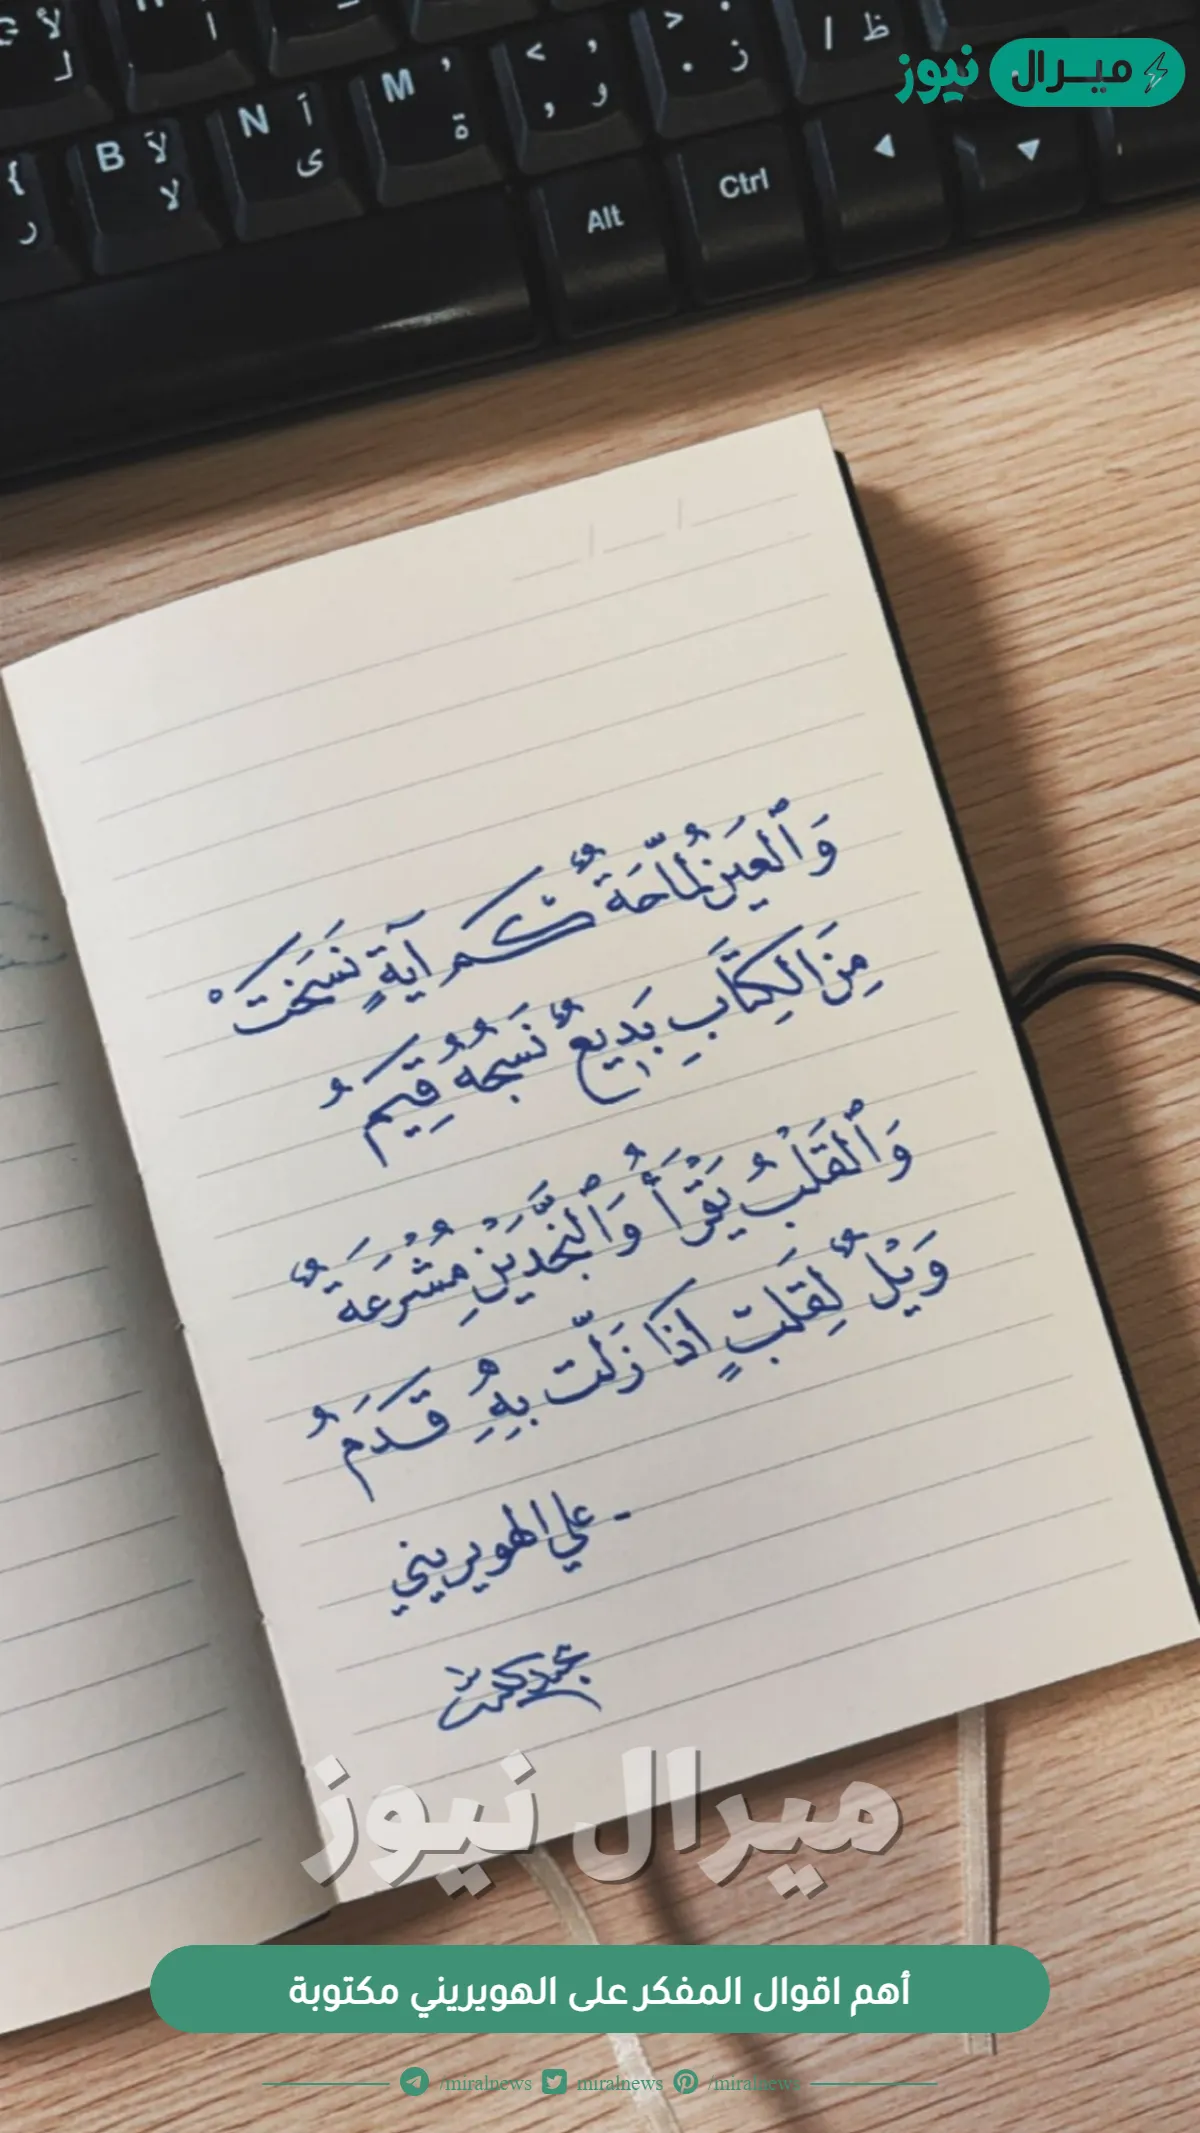 لآ
أ
ـر
ظ
/
>
ز
.
<
,
و
M
ة
N
آ
ى
B
لآ
لا
{
ر
Alt
Ctrl
ميرال نيوز
وَٱلعَين لمّاحَةٌ كم آيَةٍ نَسَخَتْ
مِنَ الكِتَابِ بَدِيعٌ نَسجُهُ قِيَمُ
وَٱلقَلْبُ يَقْرَأُ وَٱلنَّجْدَيْنِ مُشْرَعَةٌ
وَيْلٌ لِقَلبٍ اذا زَلّت بِهِ قَدَمُ
- علي الهويريني
ميرال نيوز
أهم اقوال المفكر على الهويريني مكتوبة
/miralnews miralnews /miralnews